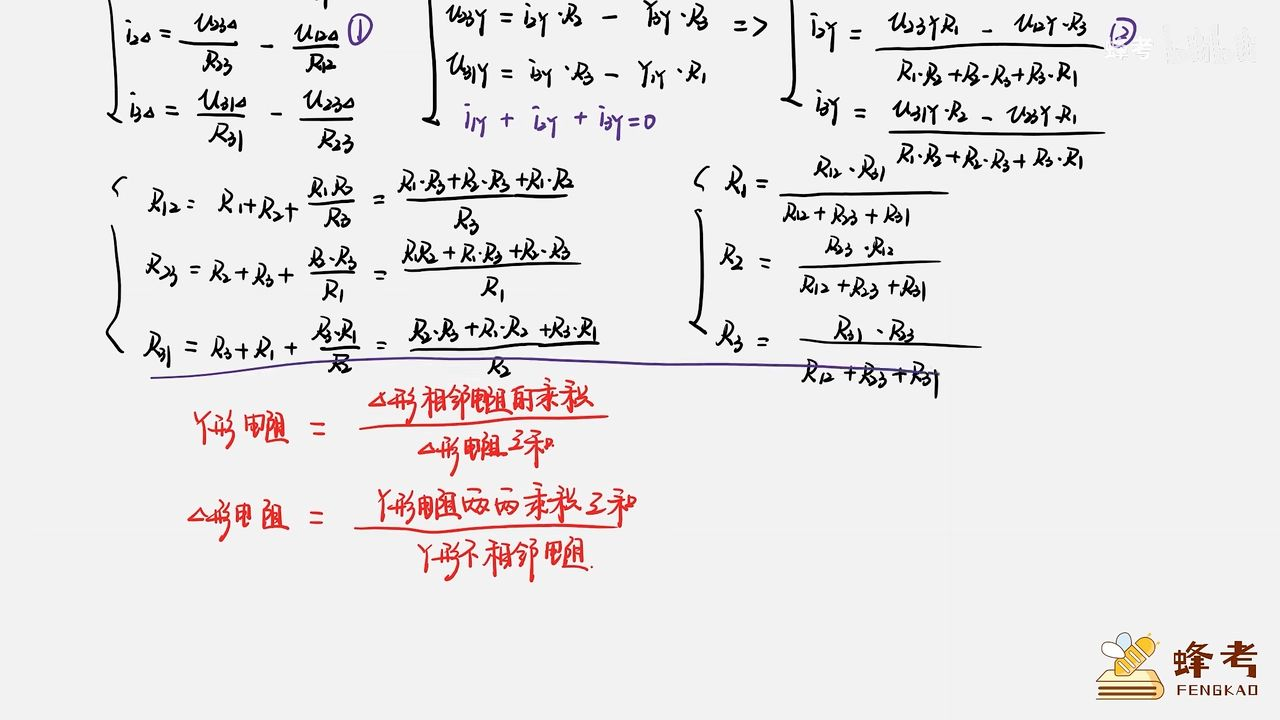 i₂△ = u₂₃△/R₂₃ - u₁₂△/R₁₂ ①
i₃△ = u₃₁△/R₃₁ - u₂₃△/R₂₃
u₂₃Y = i₂Y·R₂ - Y₃Y·R₃ =>
u₃₁Y = i₃Y·R₃ - Y₁Y·R₁
i₁Y + i₂Y + i₃Y = 0
i₂Y = (u₂₃Y R₁ - u₁₂Y·R₃)/(R₁·R₂+R₂·R₃+R₃·R₁) ②
i₃Y = (u₃₁Y·R₂ - u₂₃Y·R₁)/(R₁·R₂+R₂·R₃+R₃·R₁)
R₁₂ = R₁+R₂+ R₁R₂/R₃ = (R₁·R₃+R₂·R₃+R₁·R₂)/R₃
R₂₃ = R₂+R₃+ R₂·R₃/R₁ = (R₁R₂+R₁·R₃+R₂·R₃)/R₁
R₃₁ = R₃+R₁+ R₃·R₁/R₂ = (R₂·R₃+R₁·R₂+R₃·R₁)/R₂
R₁ = R₁₂·R₃₁/(R₁₂+R₂₃+R₃₁)
R₂ = R₂₃·R₁₂/(R₁₂+R₂₃+R₃₁)
R₃ = R₃₁·R₂₃/(R₁₂+R₂₃+R₃₁)
Y形电阻 = △形相邻电阻的乘积/△形电阻之和
△形电阻 = Y形电阻两两乘积之和/Y形不相邻电阻.
蜂考
FENGKAO
蜂考 bilibili